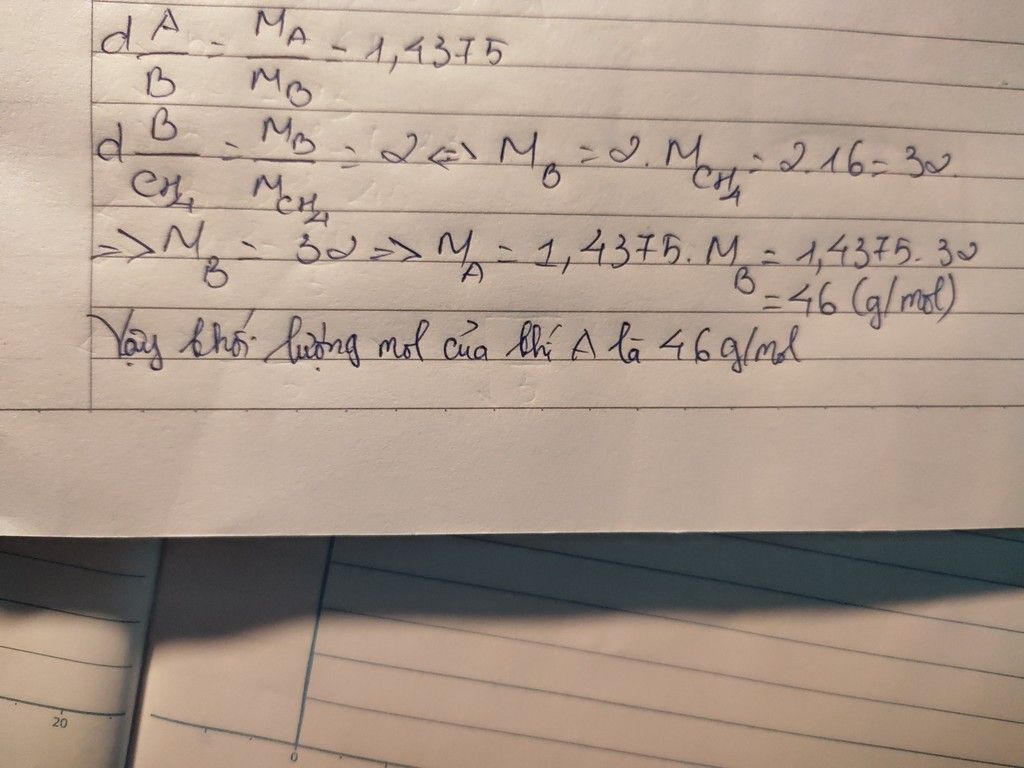 d A/B = M_A/M_B = 1,4375
d B/CH₄ = M_B/M_CH₄ = 2 <=> M_B = 2. M_CH₄ = 2.16 = 32.
=> M_B = 32 => M_A = 1,4375. M_B = 1,4375. 32
= 46 (g/mol)
Vậy khối lượng mol của khí A là 46 g/mol
20
0